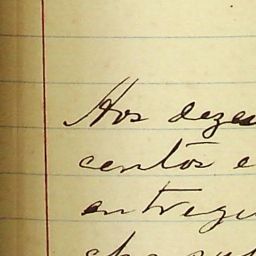 Aos deze
centos e
entregu